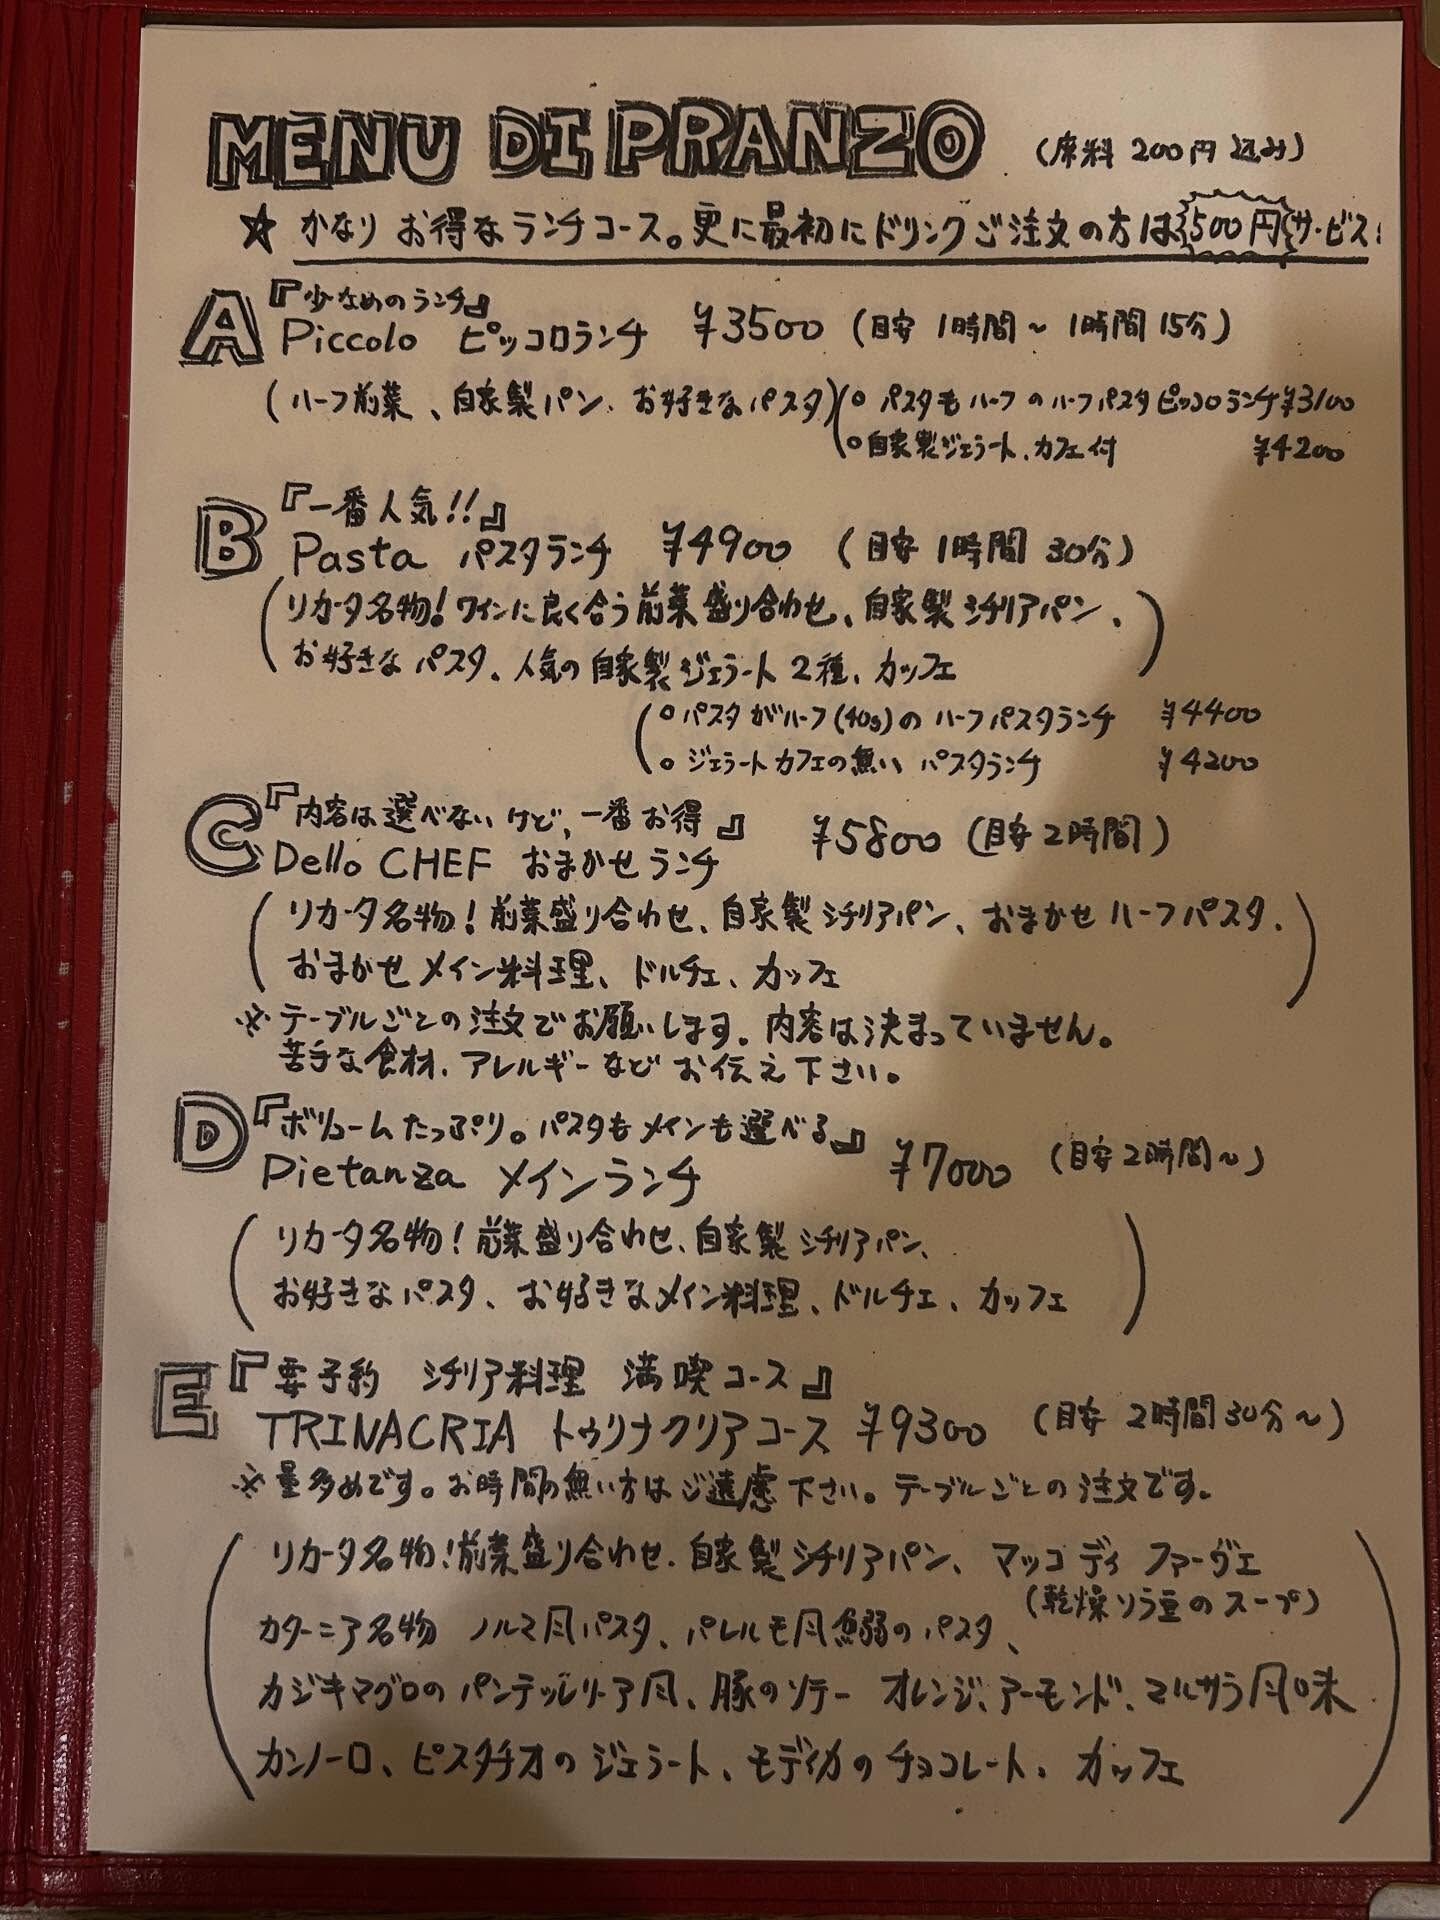 MENU DI PRANZO (席料 200円 込み)
☆ かなり お得なランチコース。更に最初にドリンクご注文の方は500円サービス!
A 『少なめのランチ』
Piccolo ピッコロランチ ¥3500 (目安 1時間～1時間15分)
(ハーフ前菜、自家製パン、お好きなパスタ)
(○ パスタもハーフのハーフパスタピッコロランチ ¥3100
○ 自家製ジェラート、カフェ付 ¥4200
B 『一番人気!!』
Pasta パスタランチ ¥4900 (目安 1時間 30分)
(リカータ名物!ワインに良く合う前菜盛り合わせ、自家製シチリアパン、
お好きなパスタ、人気の自家製ジェラート2種、カッフェ)
(○ パスタがハーフ(40g)の ハーフパスタランチ ¥4400
○ ジェラートカフェの無い パスタランチ ¥4200
C 『内容は選べないけど、一番お得』
Dello CHEF おまかせランチ ¥5800 (目安 2時間)
(リカータ名物!前菜盛り合わせ、自家製シチリアパン、おまかせハーフパスタ、
おまかせメイン料理、ドルチェ、カッフェ)
※テーブルごとの注文でお願いします。内容は決まっていません。
苦手な食材、アレルギーなどお伝え下さい。
D 『ボリュームたっぷり。パスタもメインも選べる』
Pietanza メインランチ ¥7000 (目安 2時間～)
(リカータ名物!前菜盛り合わせ、自家製シチリアパン、
お好きなパスタ、お好きなメイン料理、ドルチェ、カッフェ)
E 『要予約 シチリア料理 満喫コース』
TRINACRIA トゥリナクリアコース ¥9300 (目安 2時間30分～)
※量多めです。お時間の無い方はご遠慮下さい。テーブルごとの注文です。
(リカータ名物!前菜盛り合わせ、自家製シチリアパン、マッコ ディ ファーヴェ
(乾燥ソラ豆のスープ)
カターニア名物 ノルマ風パスタ、パレルモ風鰯のパスタ、
カジキマグロのパンテッレリーア風、豚のソテー オレンジ、アーモンド、マルサラ風味
カンノーロ、ピスタチオのジェラート、モディカのチョコレート、カッフェ)